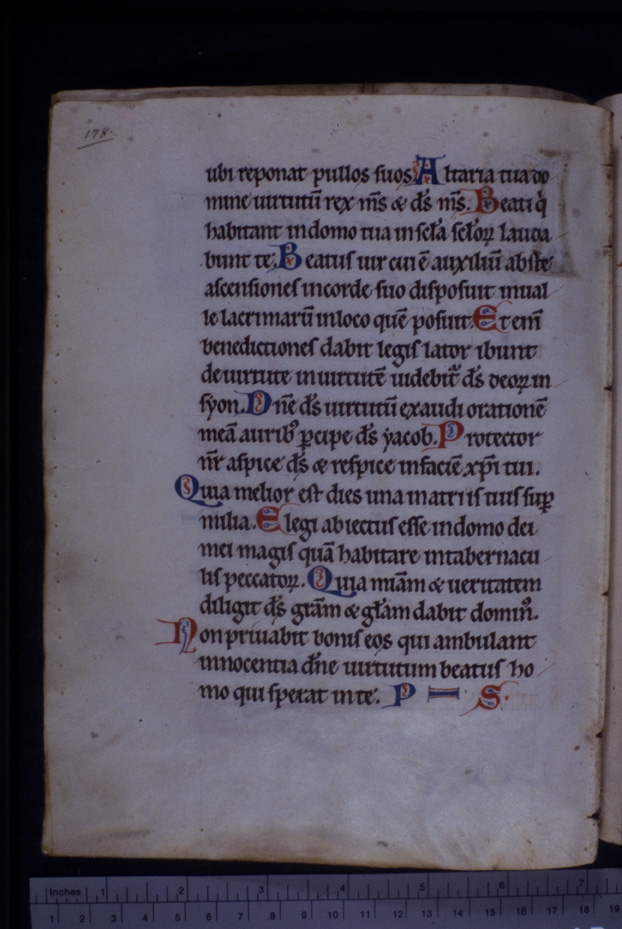 178.
ubi reponat pullos suos. Altaria tua do
mine uirtutū rex m̄s & d̄s m̄s. Beati q̇
habitant in domo tua in sc̄la sc̄loꝝ lauda
bunt te. Beatus uir cui ē auxiliū abs te
ascensiones in corde suo disposuit in ual
le lacrimarū in loco quē posuit. Et eni̅
benedictiones dabit legis lator ibunt
de uirtute in uirtutē uidebit᷑ d̄s deoꝝ in
syon. Dn̄e d̄s uirtutū exaudi orationē
meā aurib᷒ ꝑcipe d̄s yacob. Protector
nr̄ aspice d̄s & respice in faciē xp̄i tui.
Quia melior est dies una in atriis tuis suꝑ
milia. Elegi abiectus esse in domo dei
mei magis quā habitare in tabernacu
lis peccatoꝝ. Quia miām & ueritatem
diligit d̄s grām & glām dabit domin᷒.
Non priuabit bonis eos qui ambulant
innocentia dn̄e uirtutum beatus ho
mo qui sperat in te. P S.
Inches 1 2 3 4 5 6 7
1 2 3 4 5 6 7 8 9 10 11 12 13 14 15 16 17 18 19